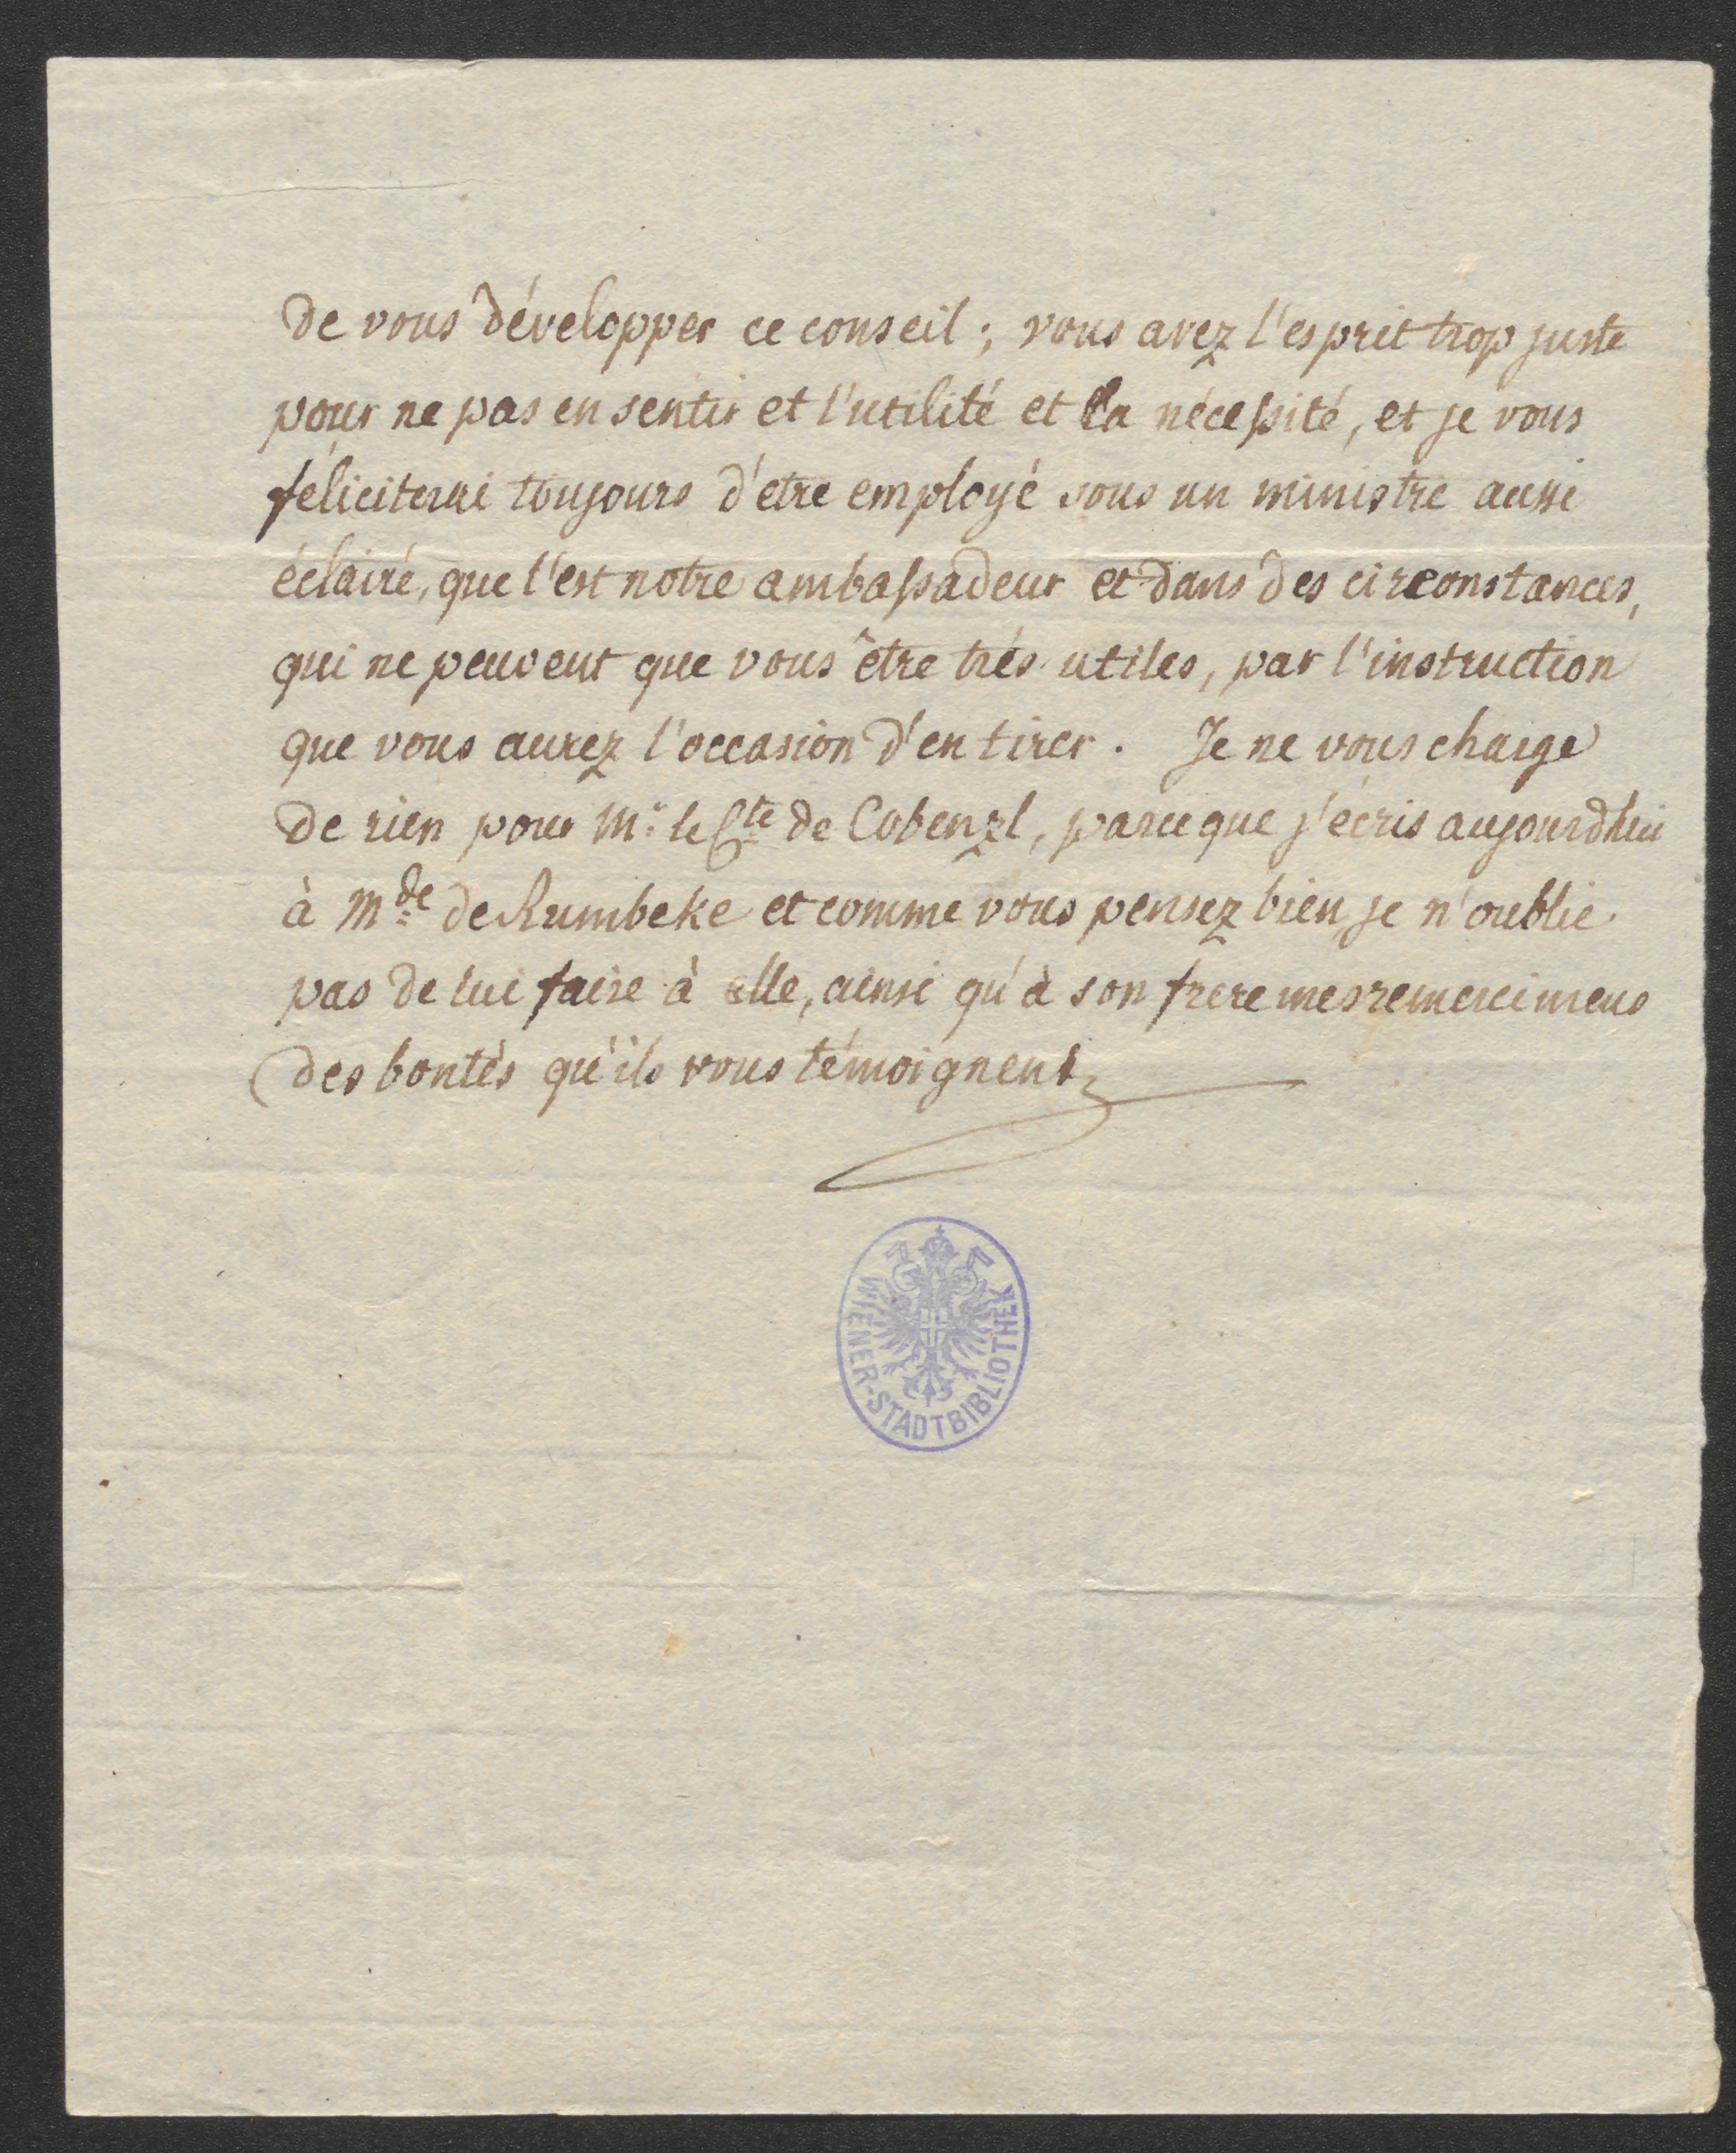 de vous développer ce conseil; vous avez l'esprit trop juste
pour ne pas en sentir et l'utilité et la nécessité, et je vous
féliciterai toujours d'etre employé sous un ministre aussi
éclairé, que l'est notre ambassadeur et dans des circonstances,
qui ne peuvent que vous être trés utiles, par l'instruction
que vous aurez l'occasion d'en tirer. Je ne vous charge
de rien pour Mr le Cte de Cobenzl, parceque j'écris aujourdhui
à Mde de Rumbeke et comme vous pensez bien je n'oublie
pas de lui faire à elle, ainsi qu'à son frere mes remercimens
des bontés qu'ils vous témoignent
WIENER-STADTBIBLIOTHEK